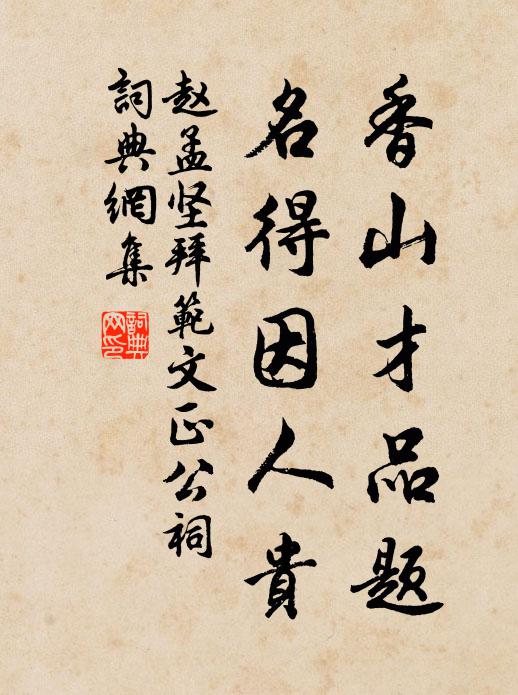 香山才品题
名得因人貴
赵孟坚拜範文正公祠
詞典網集
詞典
网印